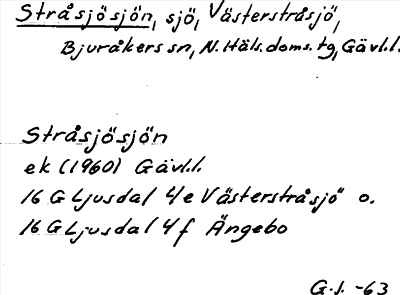 Stråsjösjön, sjö, Västerstråsjö,
Bjuråkers sn, N. Häls. doms. tg, Gävl.l.
Stråsjösjön
ek (1960) Gävl.l.
16 G Ljusdal 4e Västerstråsjö o.
16 G Ljusdal 4f Ängebo
G.J. -63